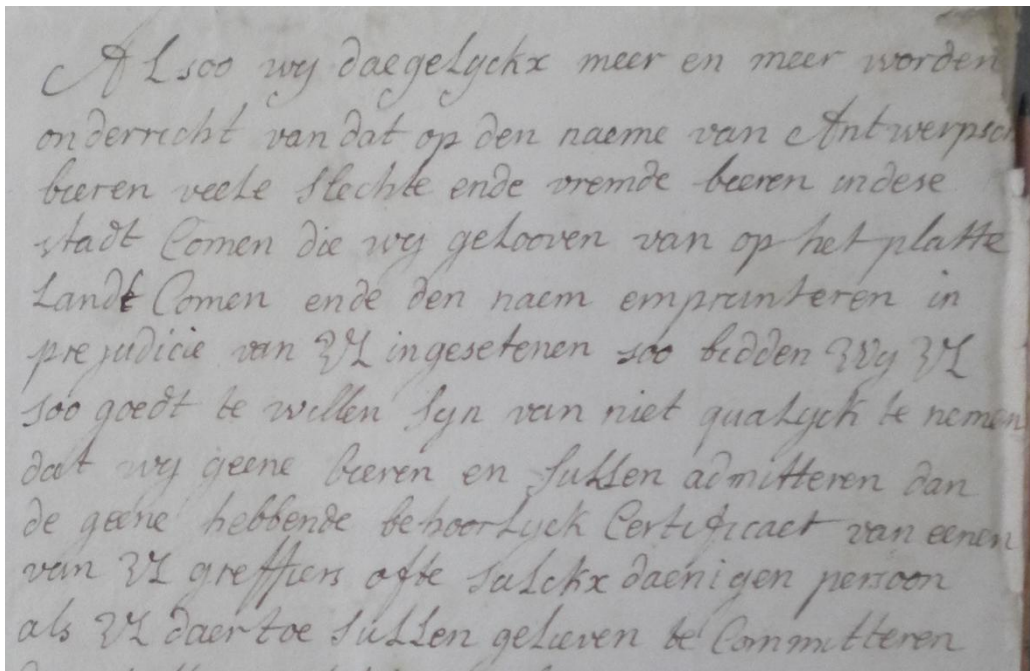 Alsoo wy daegelyckx meer en meer worden
onderrecht van dat op den naeme van Antwerpsch
bieren veele slechte ende vremde bieren in dese
stadt Comen die wy gelooven van op het platte
Landt Comen ende den naem emprunteren in
prejudicie van VL ingesetenen soo bidden Wy VL
soo goedt te willen syn van niet qualyck te nemen
dat wy geene bieren en sullen admitteren dan
de geene hebbende behoorlyck Certificaet van eenen
van VL greffiers ofte sulckx daenigen persoon
als VL daer toe sullen gelieven te Committeren